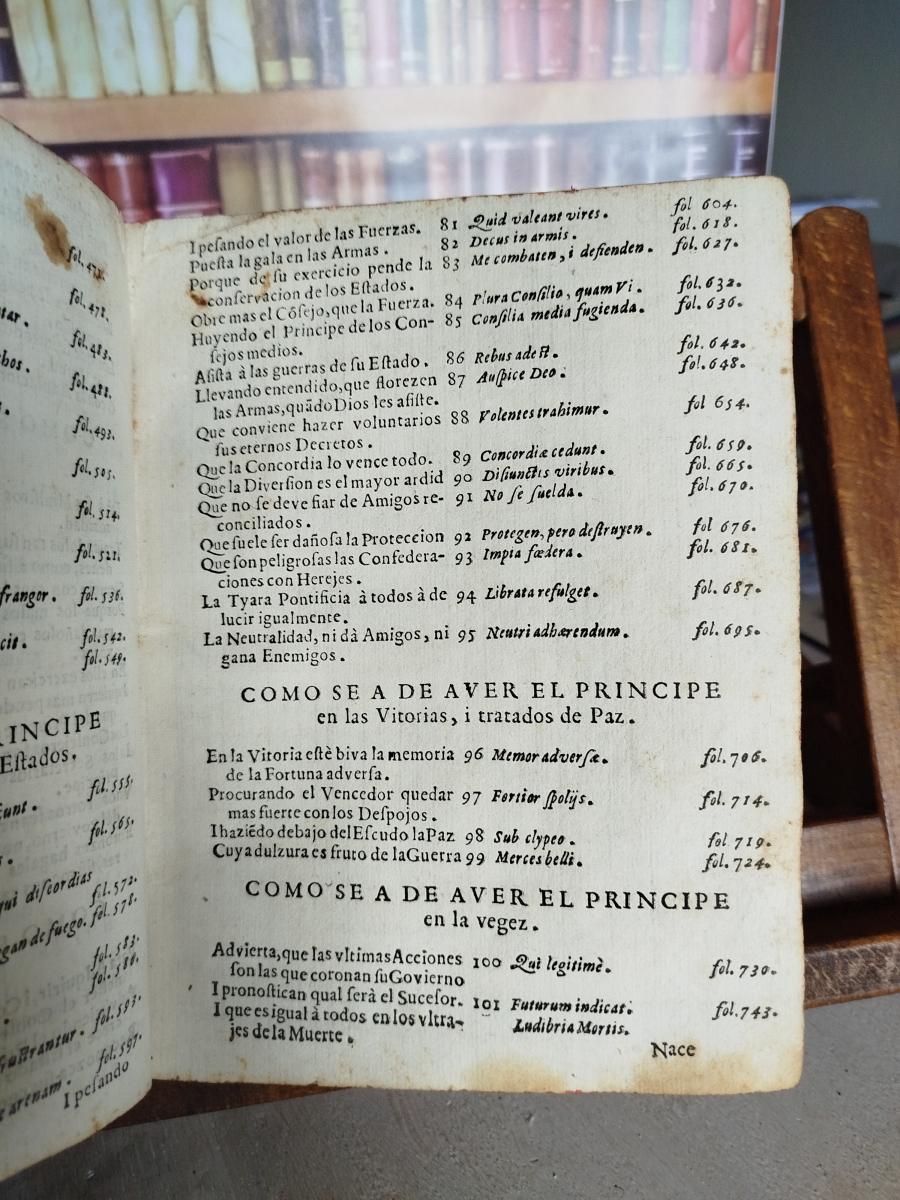 fol. 478.
tar.
fol. 483.
hos.
fol. 488.
fol. 493.
fol. 505.
fol. 514.
fol. 521.
frangor. fol. 536.
cit. fol. 542.
fol. 549.
RINCIPE
Eſtados.
fol. 555.
cunt.
fol. 565.
qui diſcordias
fol. 572.
gan de fuego. fol. 578.
fol. 583.
fol. 586.
fol. 593.
fruſtrantur.
fol. 597.
arenam.
I peſando
I peſando el valor de las Fuerzas. 81 Quid valeant vires. fol 604.
Pueſta la gala en las Armas. 82 Decus in armis. fol. 618.
Porque de ſu exercicio pende la 83 Me combaten, i defienden. fol. 627.
conſervacion de los Eſtados.
Obre mas el Cõſejo, que la Fuerza. 84 Plura Conſilio, quam Vi. fol. 632.
Huyendo el Principe de los Con- 85 Conſilia media fugienda. fol. 636.
ſejos medios.
Aſiſta à las guerras de ſu Eſtado. 86 Rebus adeſt. fol. 642.
Llevando entendido, que florezen 87 Auſpice Deo. fol. 648.
las Armas, quãdo Dios les aſiſte.
Que conviene hazer voluntarios 88 Volentes trahimur. fol 654.
ſus eternos Decretos.
Que la Concordia lo vence todo. 89 Concordiæ cedunt. fol. 659.
Que la Diverſion es el mayor ardid 90 Diſiunctis viribus. fol. 665.
Que no ſe deve fiar de Amigos re- 91 No ſe ſuelda. fol. 670.
conciliados.
Que ſuele ſer dañoſa la Proteccion 92 Protegen, pero deſtruyen. fol 676.
Que ſon peligroſas las Confedera- 93 Impia fœdera. fol. 681.
ciones con Herejes.
La Tyara Pontificia à todos à de 94 Librata refulget. fol. 687.
lucir igualmente.
La Neutralidad, ni dà Amigos, ni 95 Neutri adhærendum. fol. 695.
gana Enemigos.
COMO SE A DE AVER EL PRINCIPE
en las Vitorias, i tratados de Paz.
En la Vitoria eſtè biva la memoria 96 Memor adverſæ. fol. 706.
de la Fortuna adverſa.
Procurando el Vencedor quedar 97 Fortior ſpolijs. fol. 714.
mas fuerte con los Deſpojos.
I haziẽdo debajo del Eſcudo la Paz 98 Sub clypeo. fol 719.
Cuya dulzura es fruto de la Guerra 99 Merces belli. fol. 724.
COMO SE A DE AVER EL PRINCIPE
en la vegez.
Advierta, que las vltimas Acciones 100 Qui legitimè. fol. 730.
ſon las que coronan ſu Govierno
I pronoſtican qual ſerà el Suceſor. 101 Futurum indicat. fol. 743.
I que es igual à todos en los vltra- Ludibria Mortis.
jes de la Muerte.
Nace